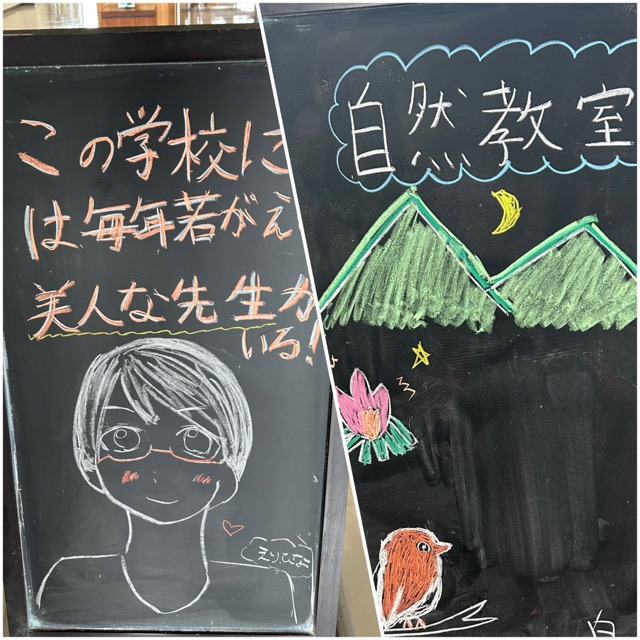 この学校に
は毎年若がえ
美人な先生が
いる!
えり.ひな
自然教室